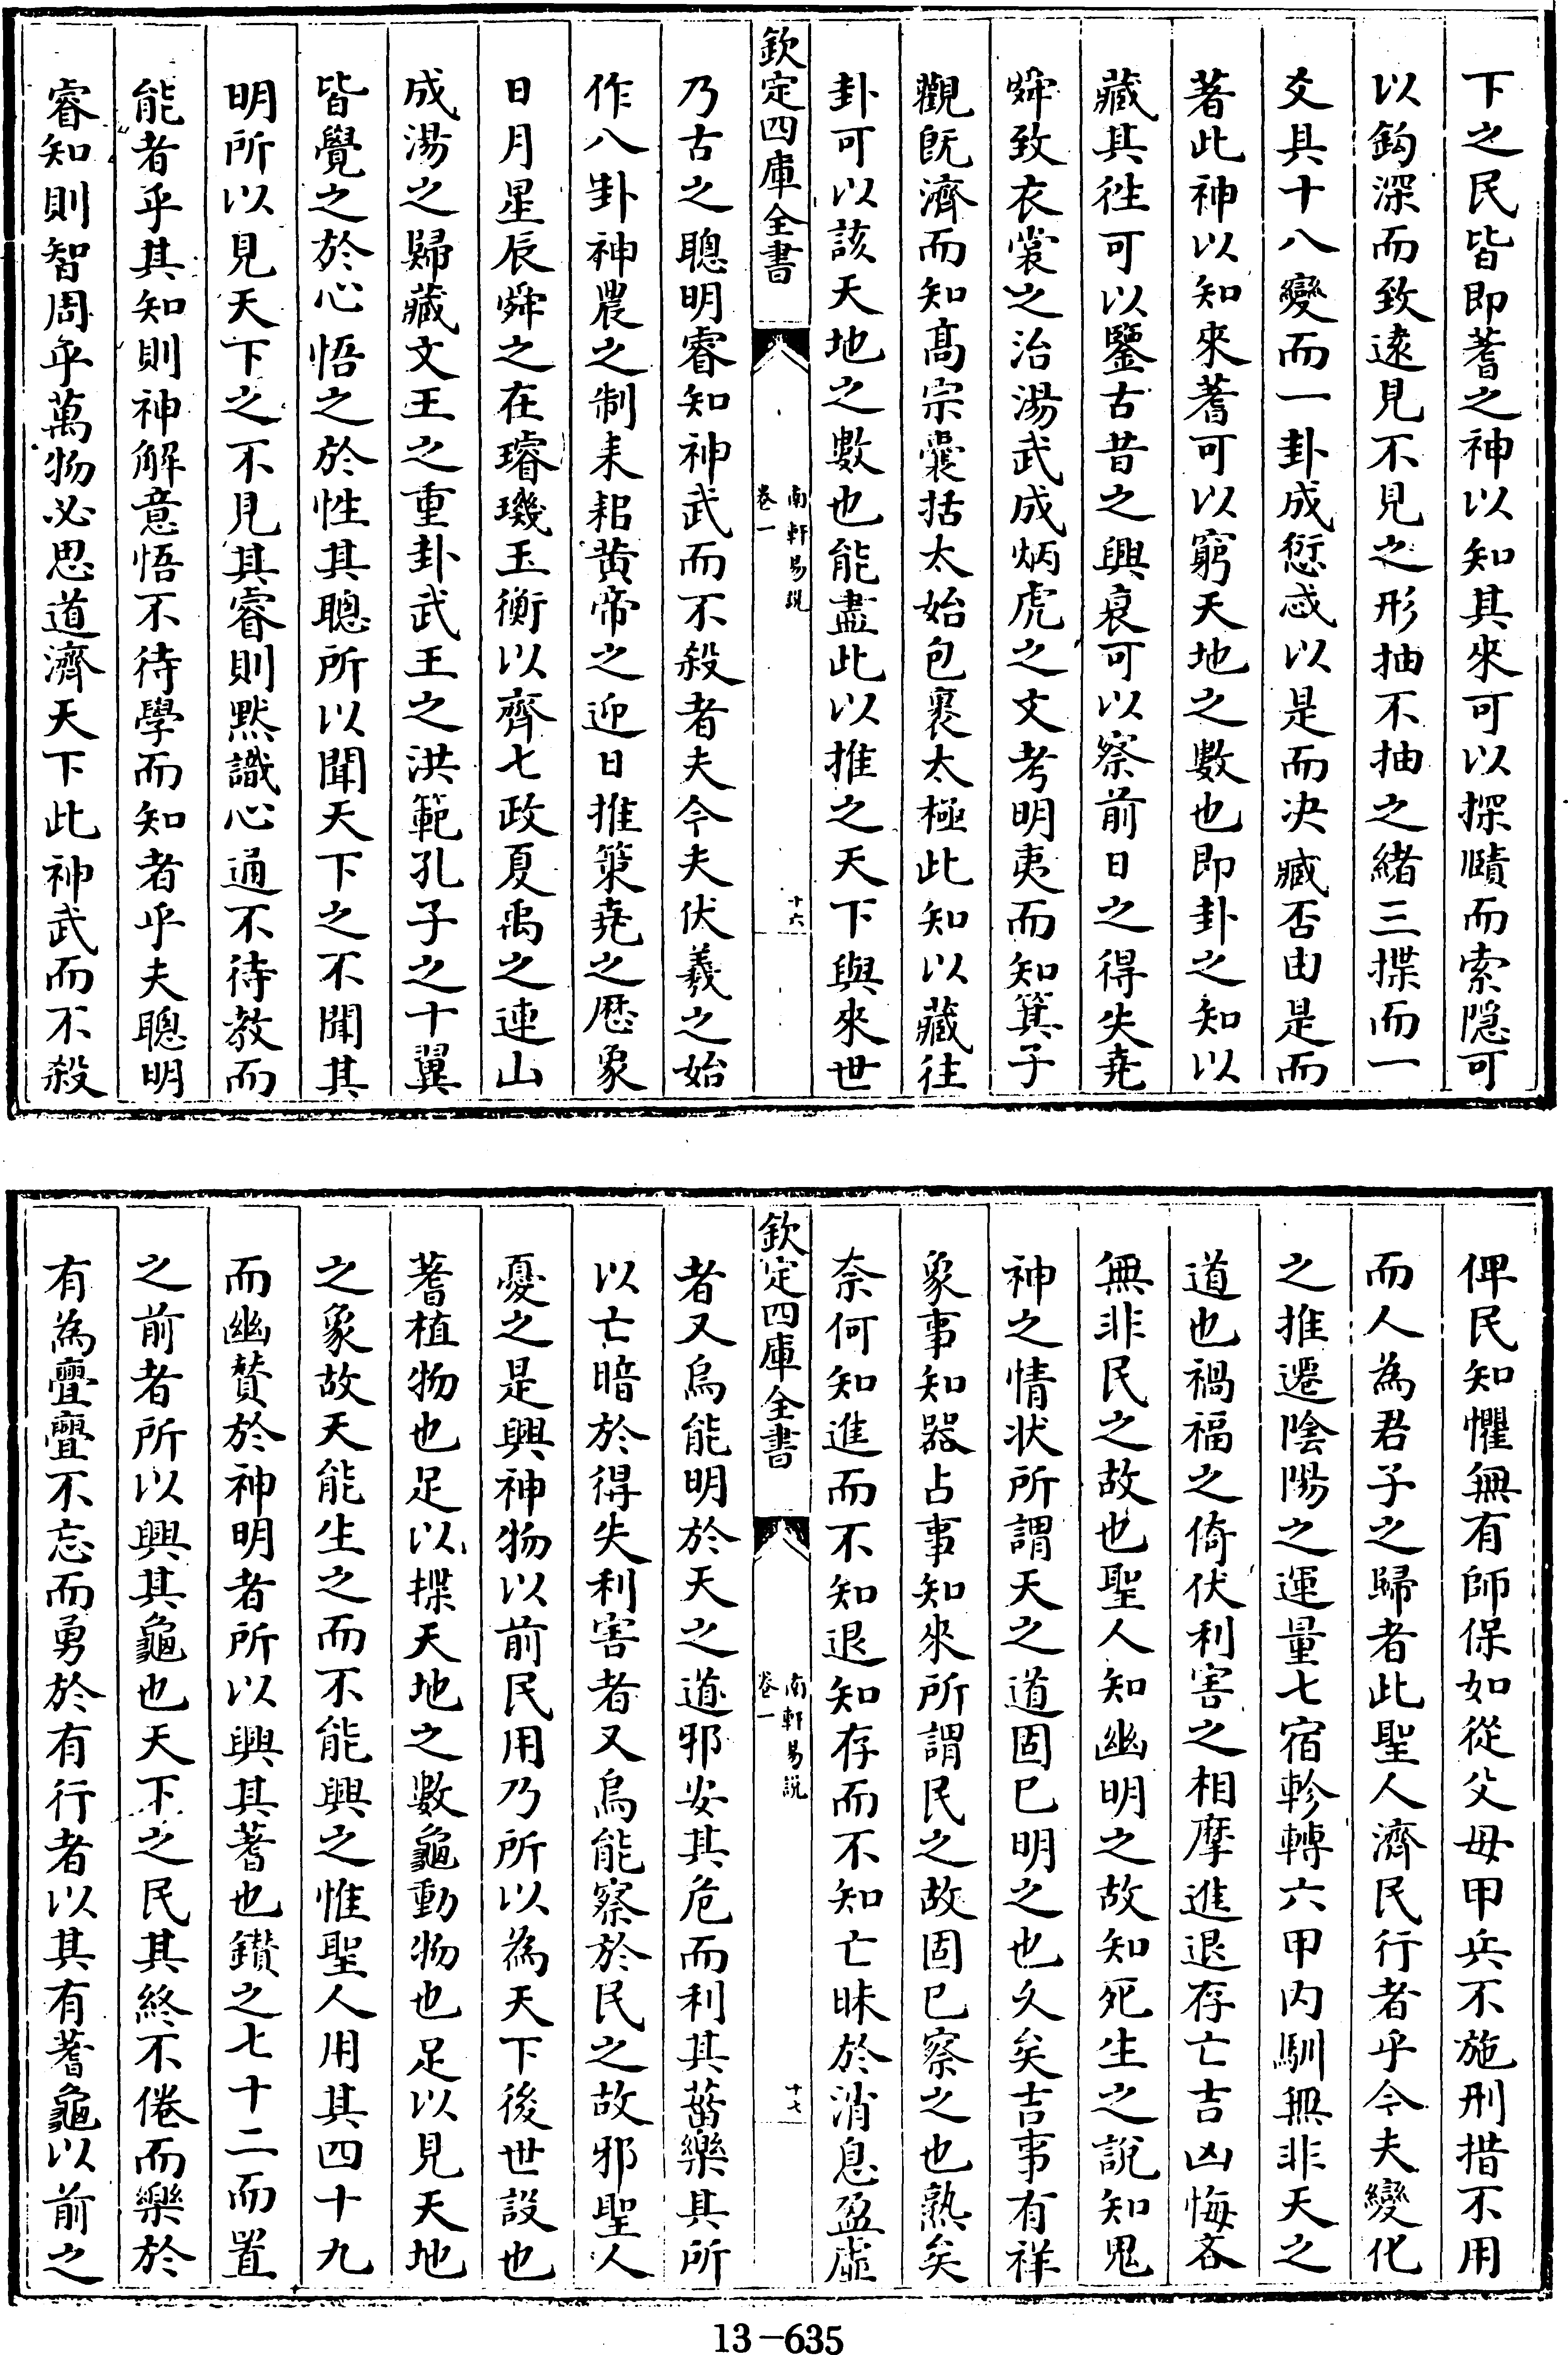 下之民皆即蓍之神以知其來可以探賾而索隠可
以鈎深而致逺見不見之形抽不抽之緒三揲而一
爻具十八變而一卦成愆忒以是而决臧否由是而
著此神以知來蓍可以窮天地之數也即卦之知以
藏其徃可以鑒古昔之興衰可以察前日之得失堯
舜致衣裳之治湯武成炳虎之文考明夷而知箕子
觀既濟而知髙宗囊括太始包裹太極此知以藏往
卦可以該天地之數也能盡此以推之天下與來世
欽定四庫全書
南軒易說
卷一
十六
乃古之聰明睿知神武而不殺者夫今夫伏羲之始
作八卦神農之制耒耜黄帝之迎日推策堯之厯象
日月星辰舜之在璿璣玉衡以齊七政夏禹之連山
成湯之歸藏文王之重卦武王之洪範孔子之十翼
皆覺之於心悟之於性其聰所以聞天下之不聞其
明所以見天下之不見其睿則黙識心通不待教而
能者乎其知則神解意悟不待學而知者乎夫聰明
睿知則智周乎萬物必思道濟天下此神武而不殺
俾民知懼無有師保如從父母甲兵不施刑措不用
而人為君子之歸者此聖人濟民行者乎今夫變化
之推遷陰陽之運量七宿軫轉六甲内馴無非天之
道也禍福之倚伏利害之相摩進退存亡吉凶悔吝
無非民之故也聖人知幽明之故知死生之說知鬼
神之情状所謂天之道固已明之也久矣吉事有祥
象事知器占事知來所謂民之故固已察之也熟矣
奈何知進而不知退知存而不知亡昧於消息盈虚
欽定四庫全書
南軒易說
卷一
十七
者又烏能明於天之道邪安其危而利其菑樂其所
以亡暗於得失利害者又烏能察於民之故邪聖人
憂之是興神物以前民用乃所以為天下後世設也
蓍植物也足以揲天地之數龜動物也足以見天地
之象故天能生之而不能興之惟聖人用其四十九
而幽賛於神明者所以興其蓍也鑚之七十二而置
之前者所以興其龜也天下之民其終不倦而樂於
有為亹亹不忘而勇於有行者以其有蓍龜以前之
13-635